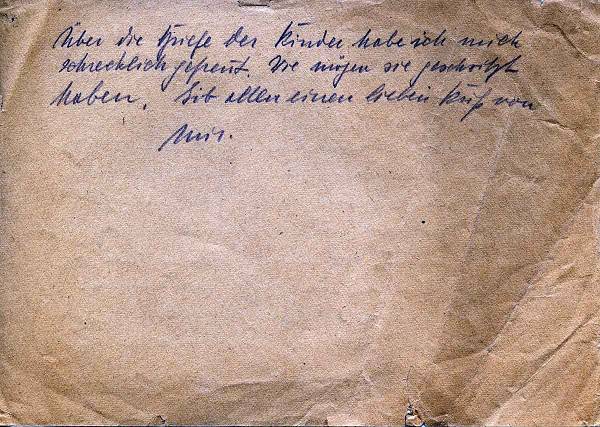 Über die Briefe der Kinder habe ich mich
schrecklich gefreut. Wie mögen sie geschwitzt
haben. Gib allen einen lieben Kuß von
mir.